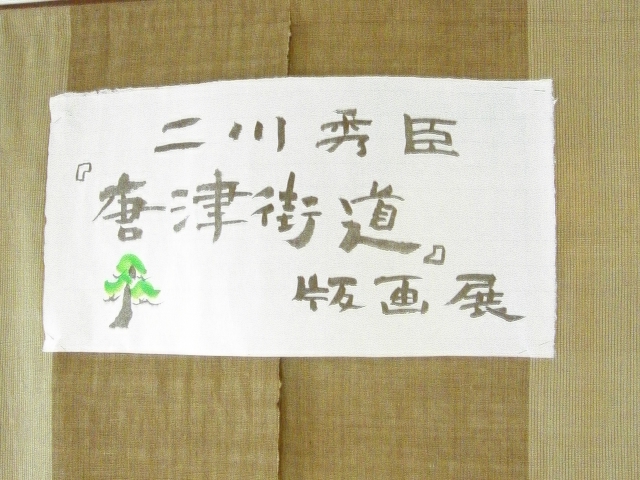 二川秀臣
『唐津街道』
版画展